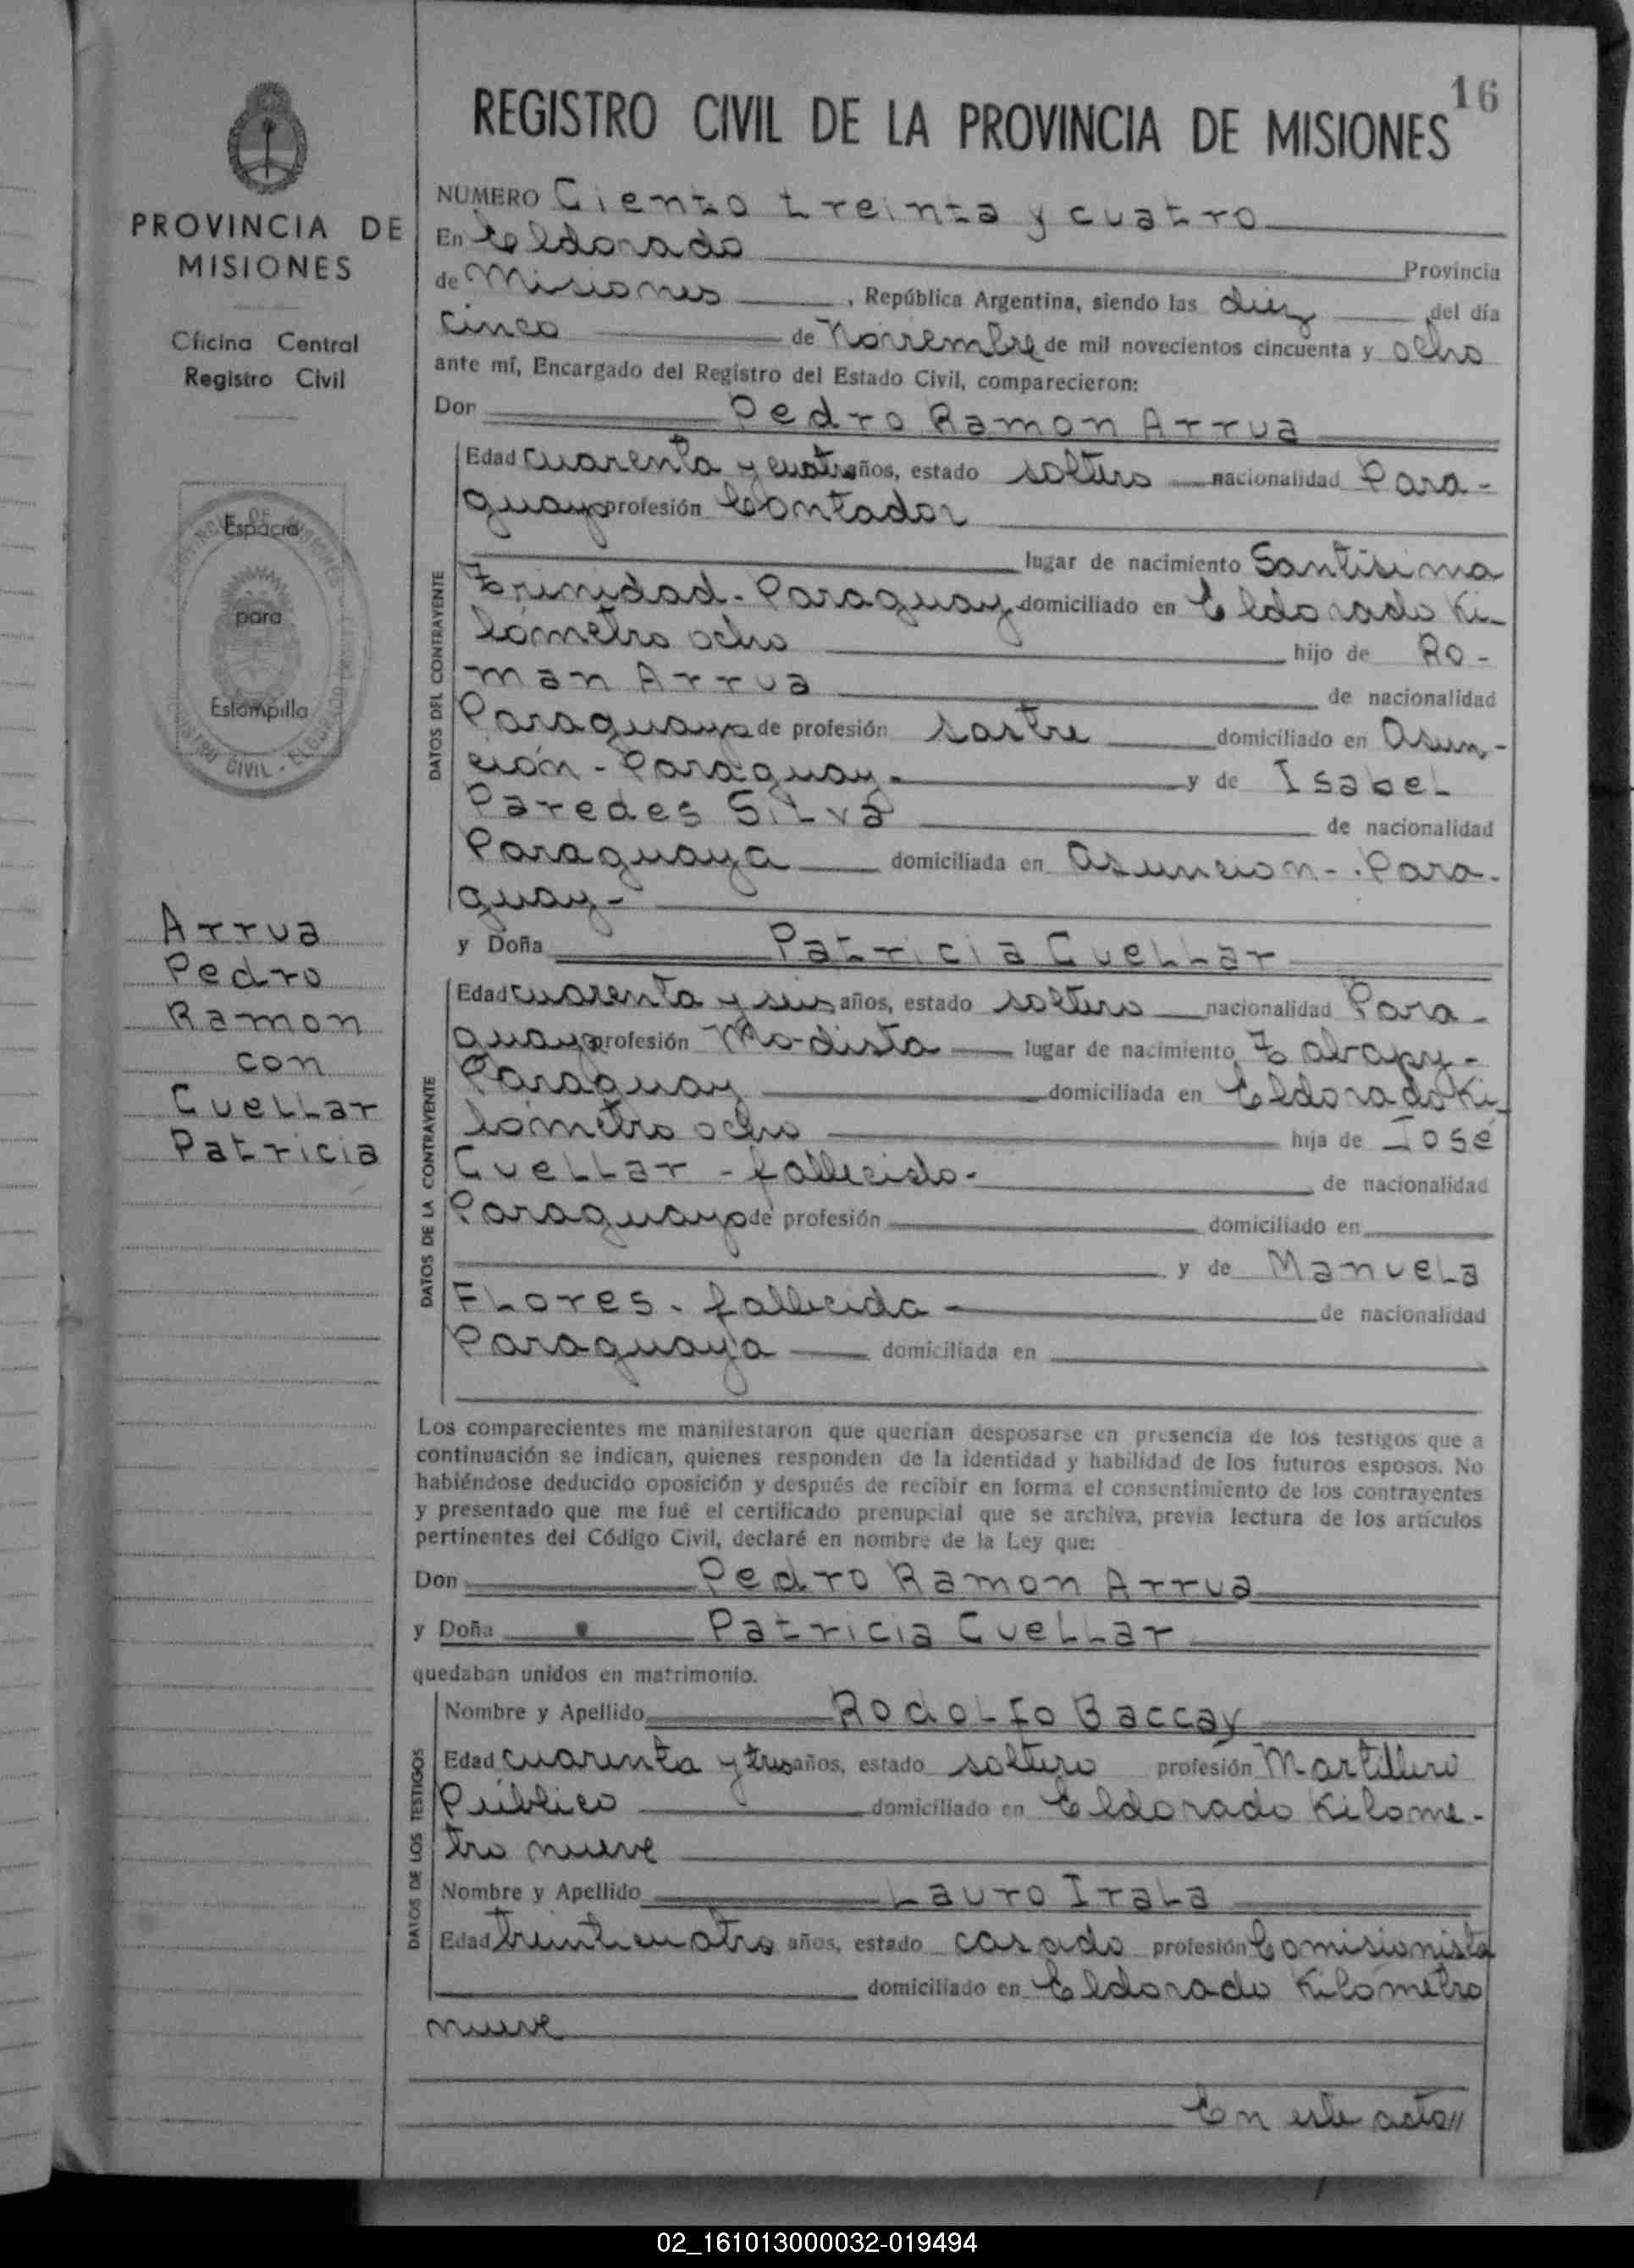 16
REGISTRO CIVIL DE LA PROVINCIA DE MISIONES
PROVINCIA DE
MISIONES
Oficina Central
Registro Civil
Espacio
para
Estampilla
Arrua
Pedro
Ramon
con
Cuellar
Patricia
NUMERO Ciento treinta y cuatro
En Eldorado Provincia
de Misiones, República Argentina, siendo las diez del día
cinco de Noviembre de mil novecientos cincuenta y ocho
ante mí, Encargado del Registro del Estado Civil, comparecieron:
Don Pedro Ramon Arrua
Edad cuarenta y cuatro años, estado soltero nacionalidad Para-
guayo profesión Contador
lugar de nacimiento Santisima
Trinidad - Paraguay domiciliado en Eldorado Ki-
lómetro ocho hijo de Ro-
man Arrua de nacionalidad
Paraguayo de profesión sastre domiciliado en Asun-
ción - Paraguay - y de Isabel
Paredes Silva de nacionalidad
Paraguaya domiciliada en Asuncion - Para-
guay -
DATOS DEL CONTRAYENTE
y Doña Patricia Cuellar
Edad cuarenta y seis años, estado soltera nacionalidad Para-
guaya profesión Modista lugar de nacimiento Tabapy -
Paraguay domiciliada en Eldorado Ki-
lómetro ocho hija de José
Cuellar - fallecido - de nacionalidad
Paraguayo de profesión domiciliado en
y de Manuela
Flores - fallecida - de nacionalidad
Paraguaya domiciliada en
DATOS DE LA CONTRAYENTE
Los comparecientes me manifestaron que querían desposarse en presencia de los testigos que a
continuación se indican, quienes responden de la identidad y habilidad de los futuros esposos. No
habiéndose deducido oposición y después de recibir en forma el consentimiento de los contrayentes
y presentado que me fué el certificado prenupcial que se archiva, previa lectura de los artículos
pertinentes del Código Civil, declaré en nombre de la Ley que:
Don Pedro Ramon Arrua
y Doña Patricia Cuellar
quedaban unidos en matrimonio.
Nombre y Apellido Rodolfo Baccay
Edad cuarenta y tres años, estado soltero profesión Martillero
Público domiciliado en Eldorado Kilome-
tro nueve
Nombre y Apellido Lauro Irala
Edad treinticuatro años, estado casado profesión Comisionista
domiciliado en Eldorado Kilómetro
nueve
DATOS DE LOS TESTIGOS
En este acto//
02_161013000032-019494